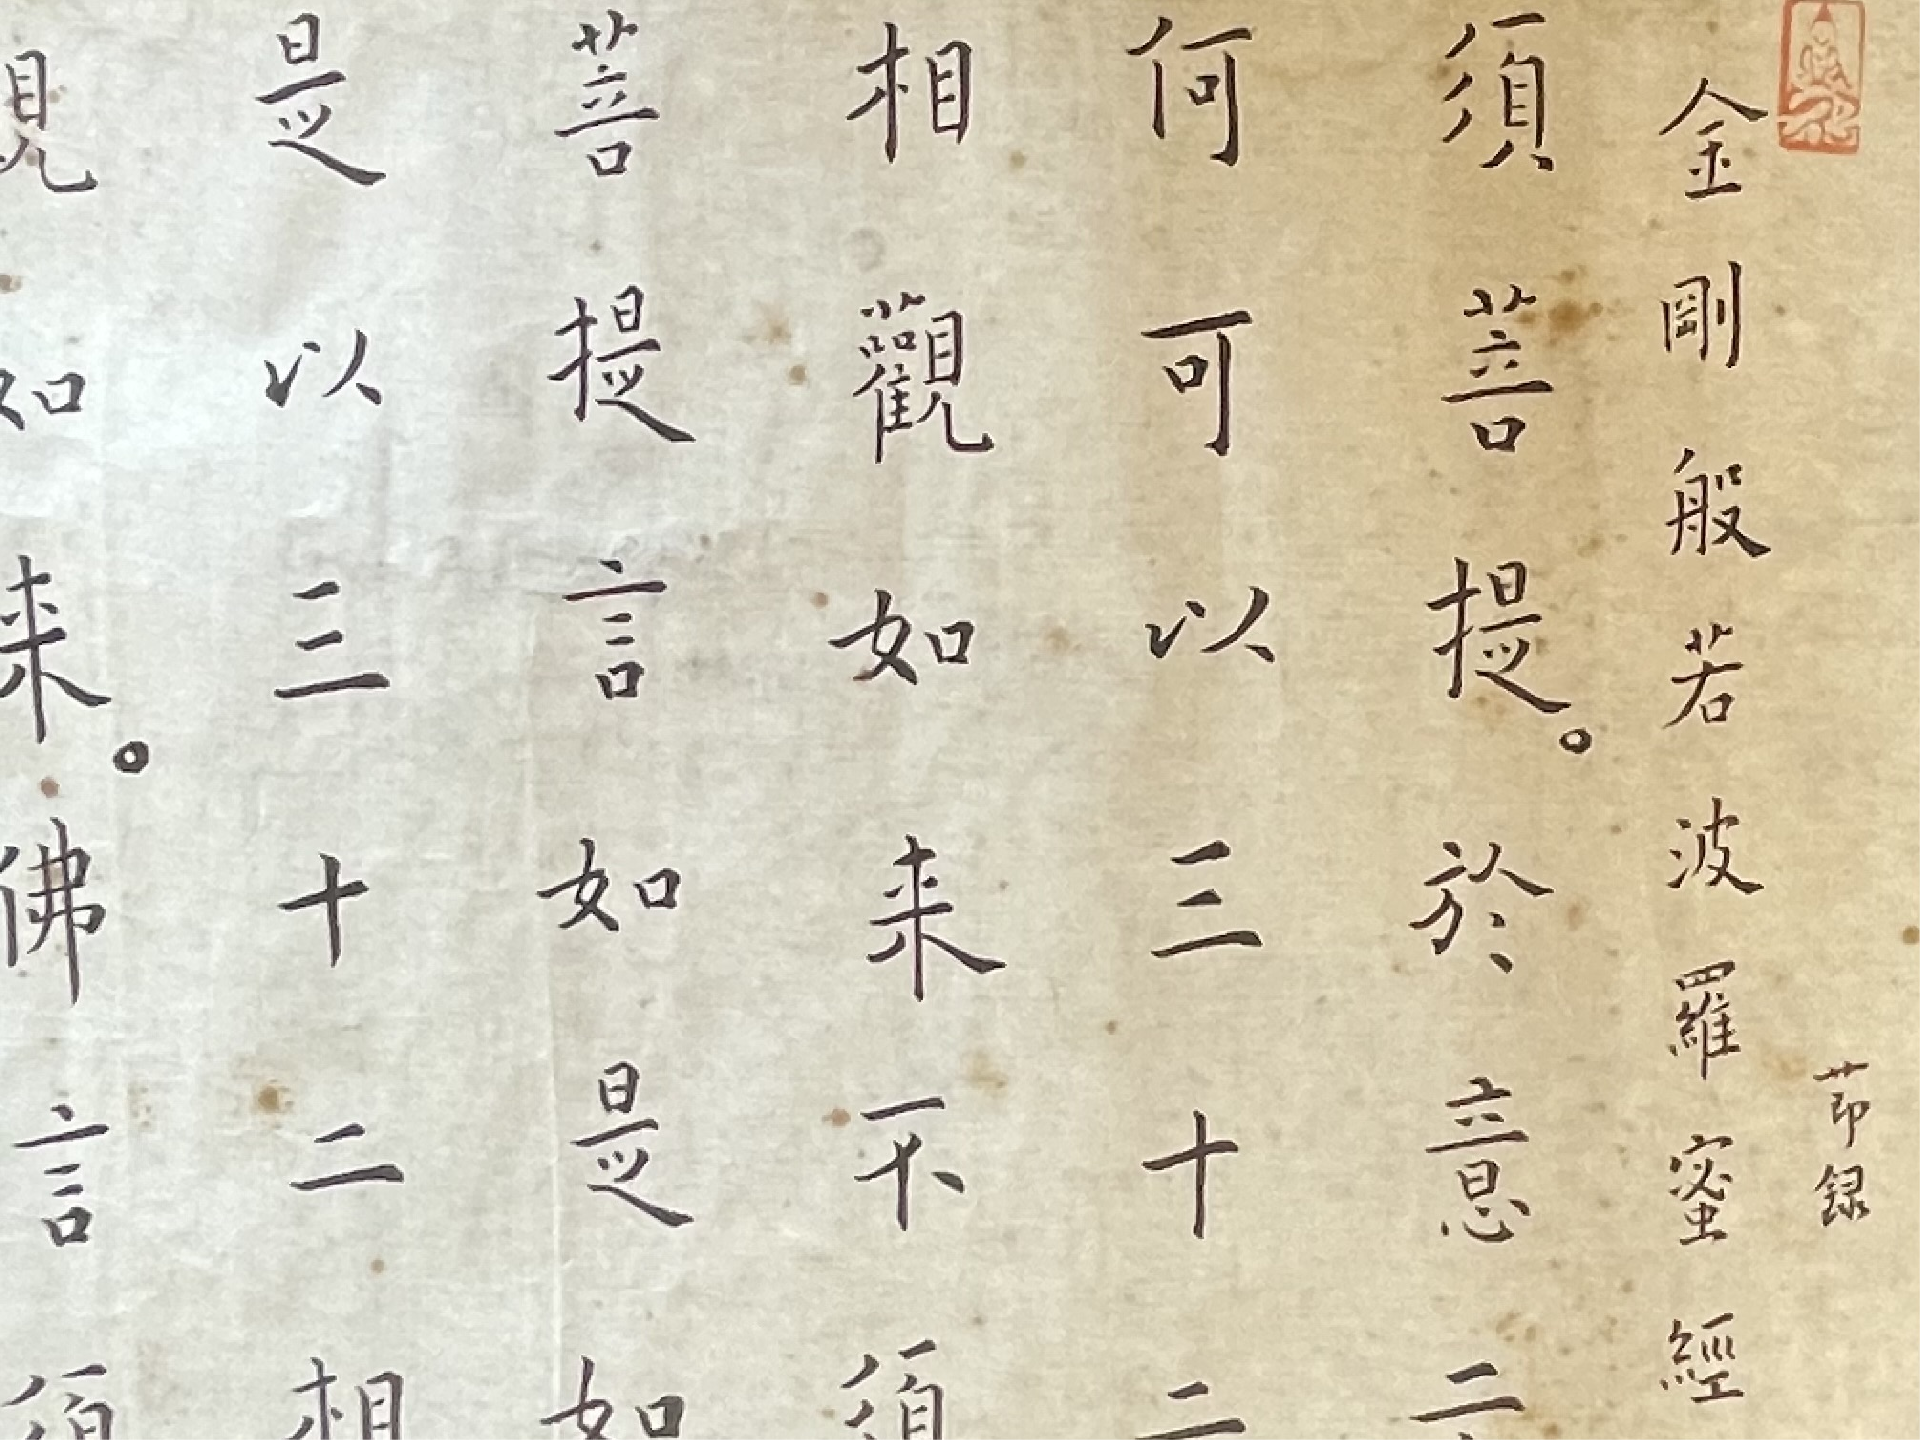 莭録
金剛般若波羅蜜經
須菩提。於意云
何可以三十二
相觀如来不須
菩提言如是如
是以三十二相
觀如来。佛言須